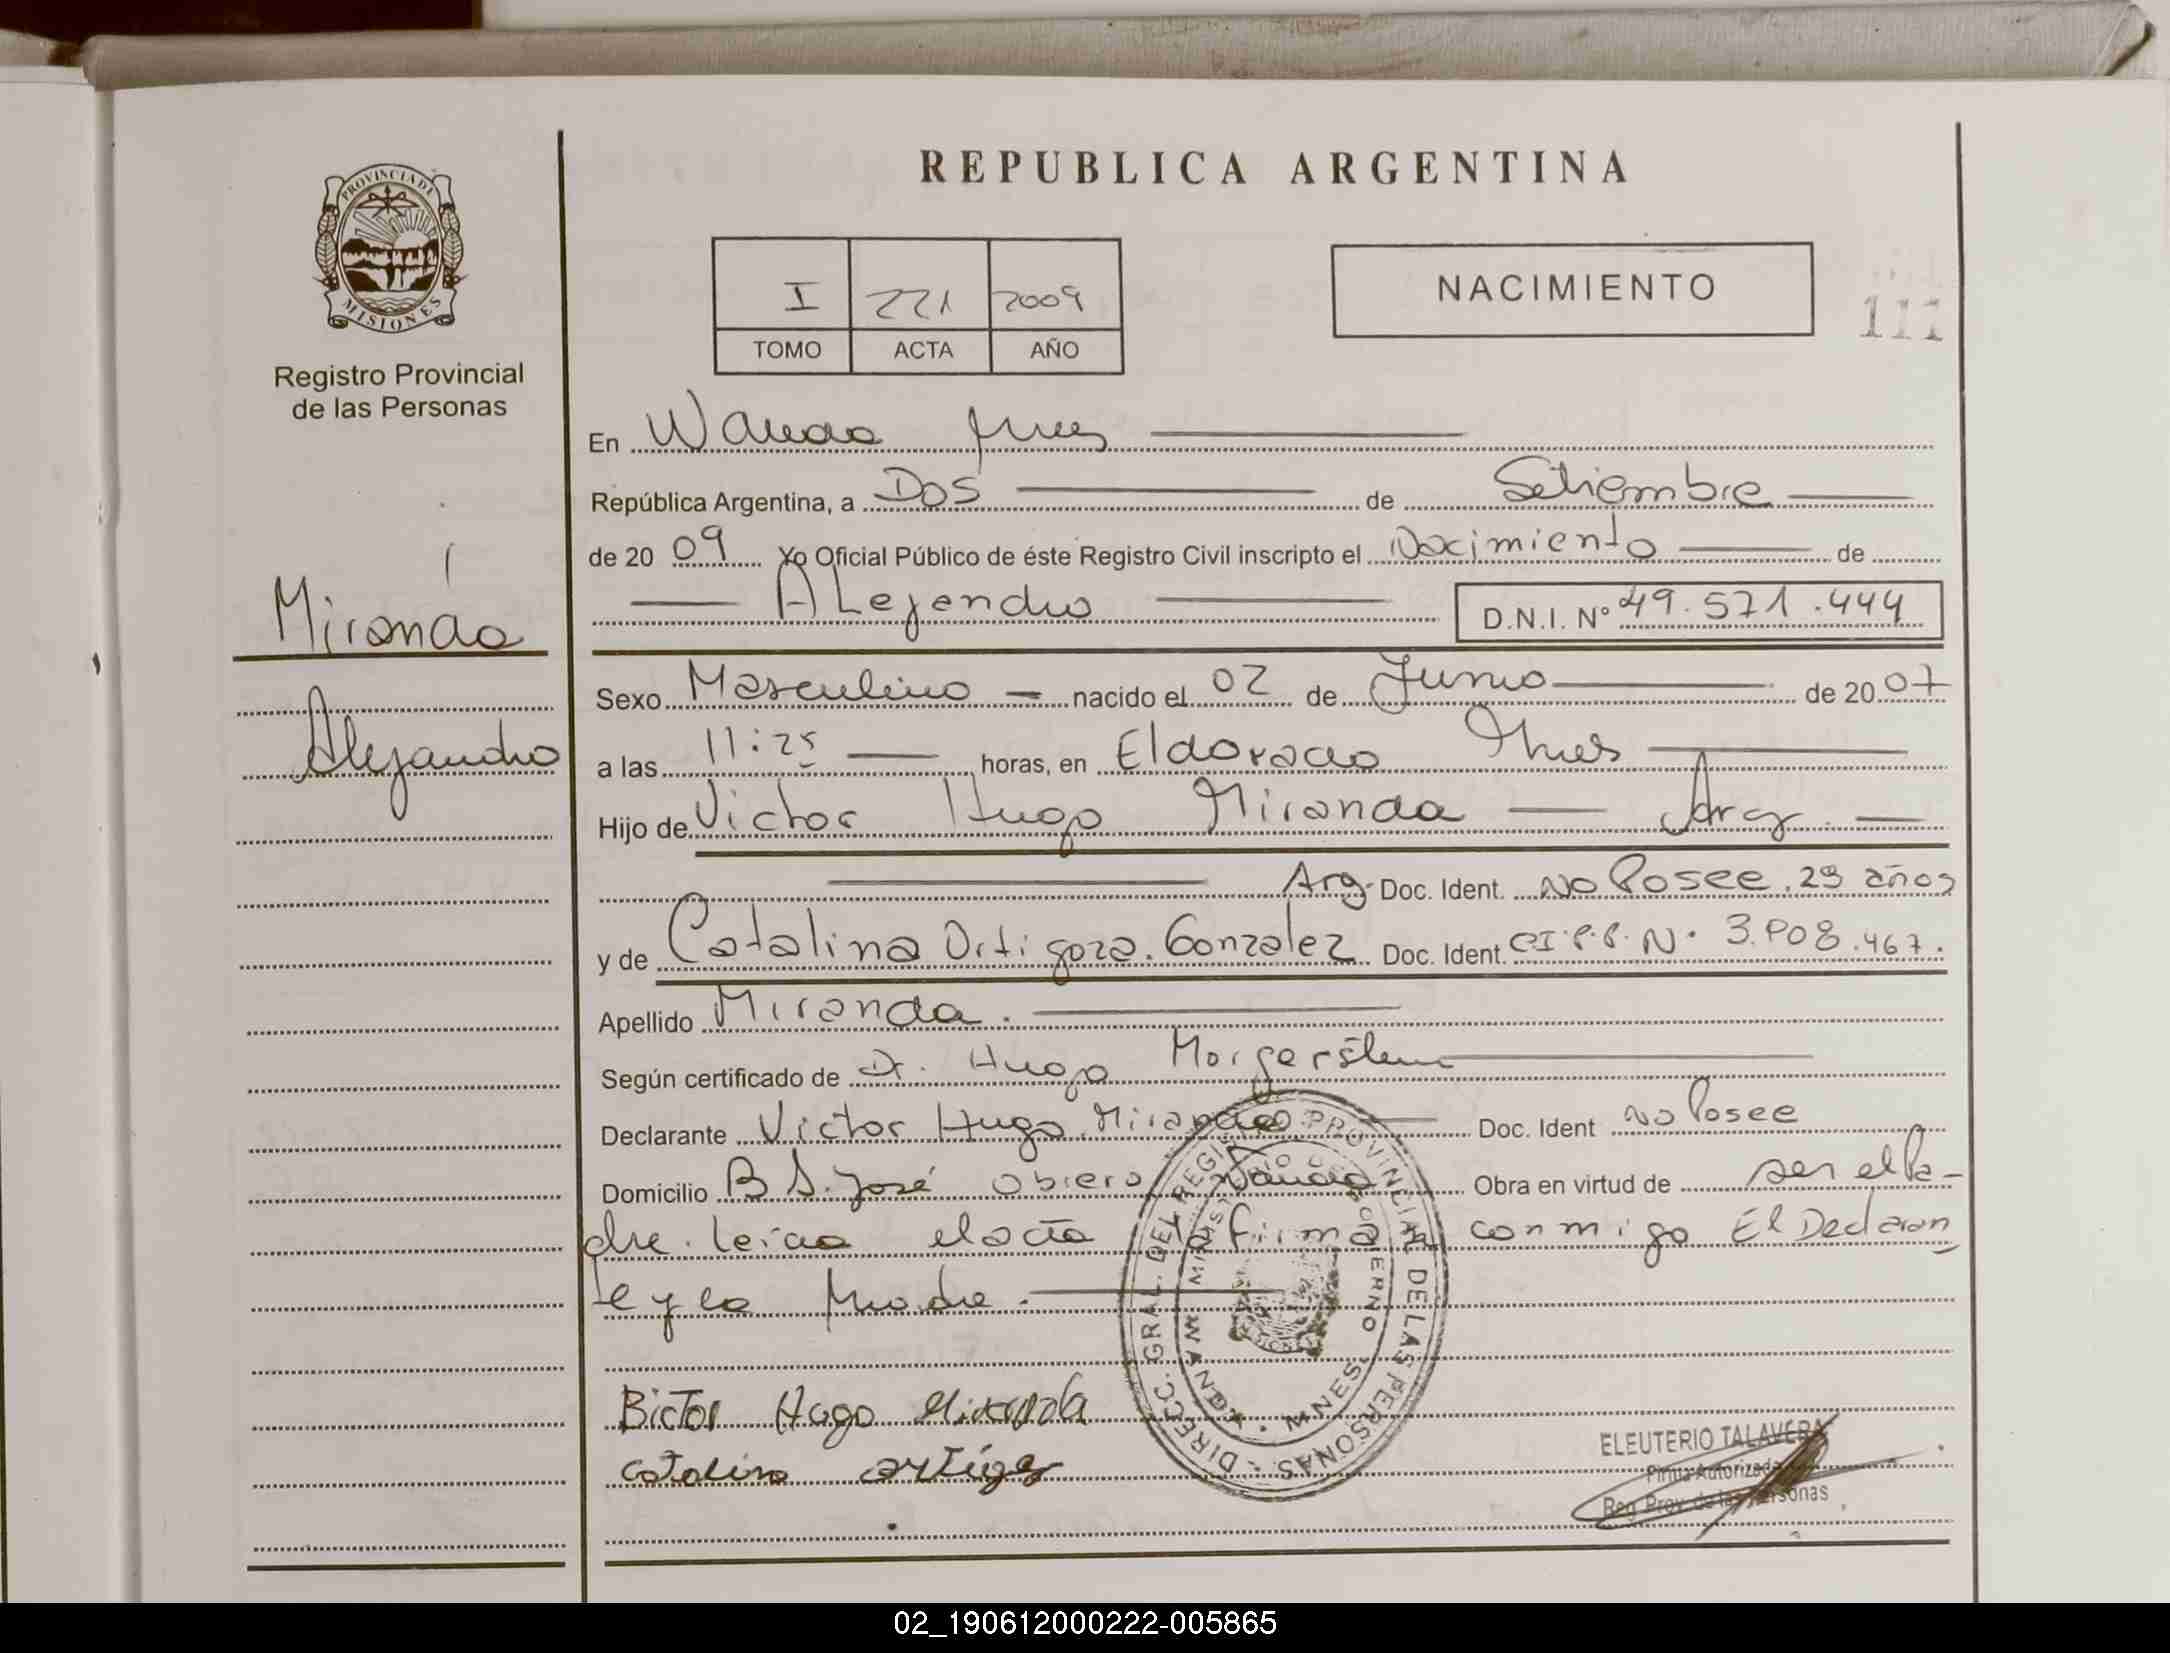 REPUBLICA ARGENTINA
PROVINCIA DE MISIONES
Registro Provincial
de las Personas
I 221 2009
TOMO ACTA AÑO
NACIMIENTO
111
En Wanda Mnes
República Argentina, a Dos de Setiembre
de 20 09 Yo Oficial Público de éste Registro Civil inscripto el Nacimiento de
Alejandro D.N.I. Nº 49.571.444
Miranda
Alejandro
Sexo Masculino nacido el 02 de Junio de 20 07
a las 11:25 horas, en Eldorado Mnes
Hijo de Victor Hugo Miranda Arg.
Arg. Doc. Ident. No Posee. 29 años
y de Catalina Ortigoza. Gonzalez Doc. Ident. CI.P.P. Nº 3.908.467.
Apellido Miranda.
Según certificado de Dr. Hugo Morgerstern
Declarante Victor Hugo Miranda Doc. Ident No Posee
Domicilio B S. José Obrero Wanda Obra en virtud de ser el Pa-
dre. leída el acta la firma conmigo El Declaran
te y la Madre.
DIRECC. GRAL. DEL REGISTRO PROVINCIAL DE LAS PERSONAS
MINISTERIO DE GOBIERNO
WANDA - MNES.
Bictor Hugo Miranda
catalina ortigoz
ELEUTERIO TALAVERA
Firma Autorizada
Reg. Prov. de las Personas
02_190612000222-005865